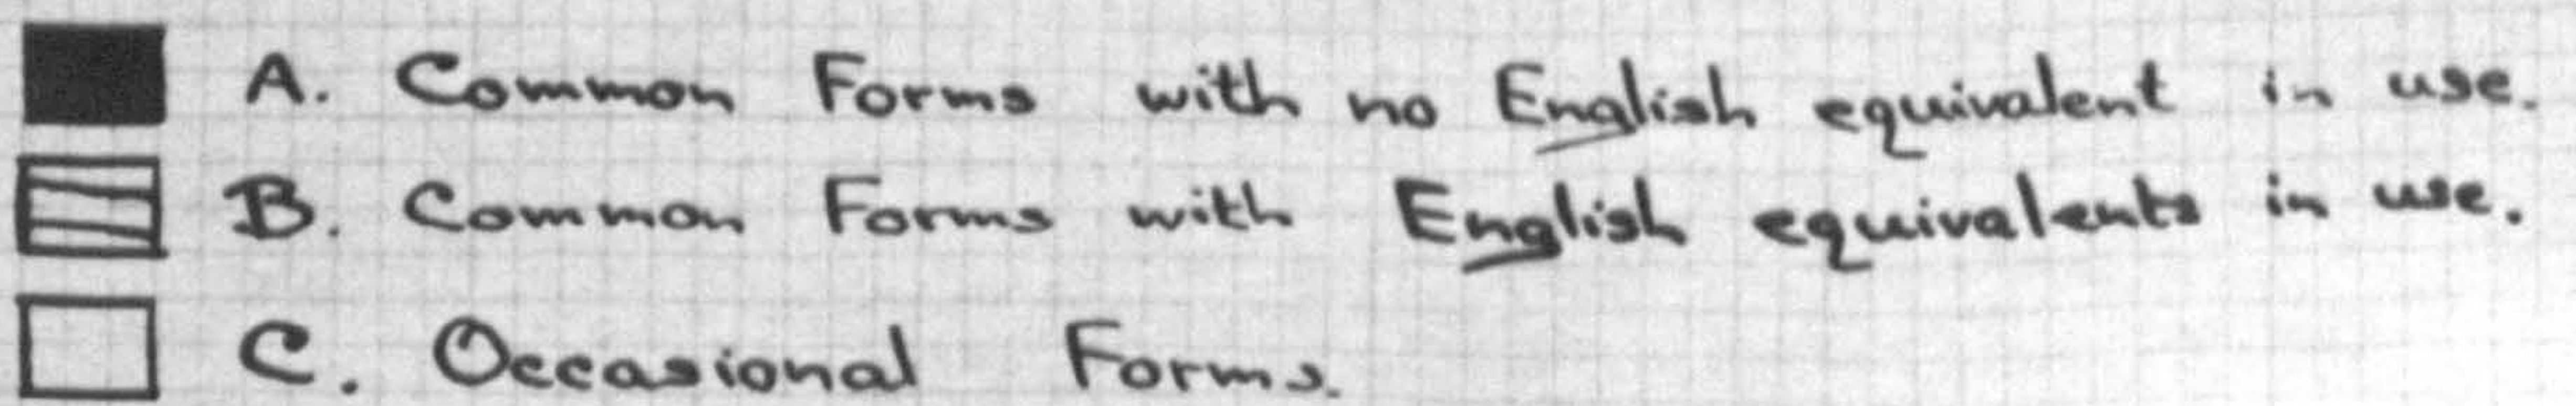 A. Common Forms with no English equivalent in use.
B. Common Forms with English equivalents in use.
C. Occasional Forms.